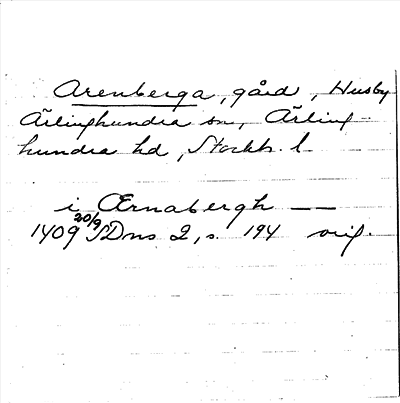 Arenberga, gård, Husby
Ärlinghundra sn, Ärling-
hundra hd, Stockh. l.
i Ærnabergh —
1409 20/9 SDns 2, s. 194 orig.